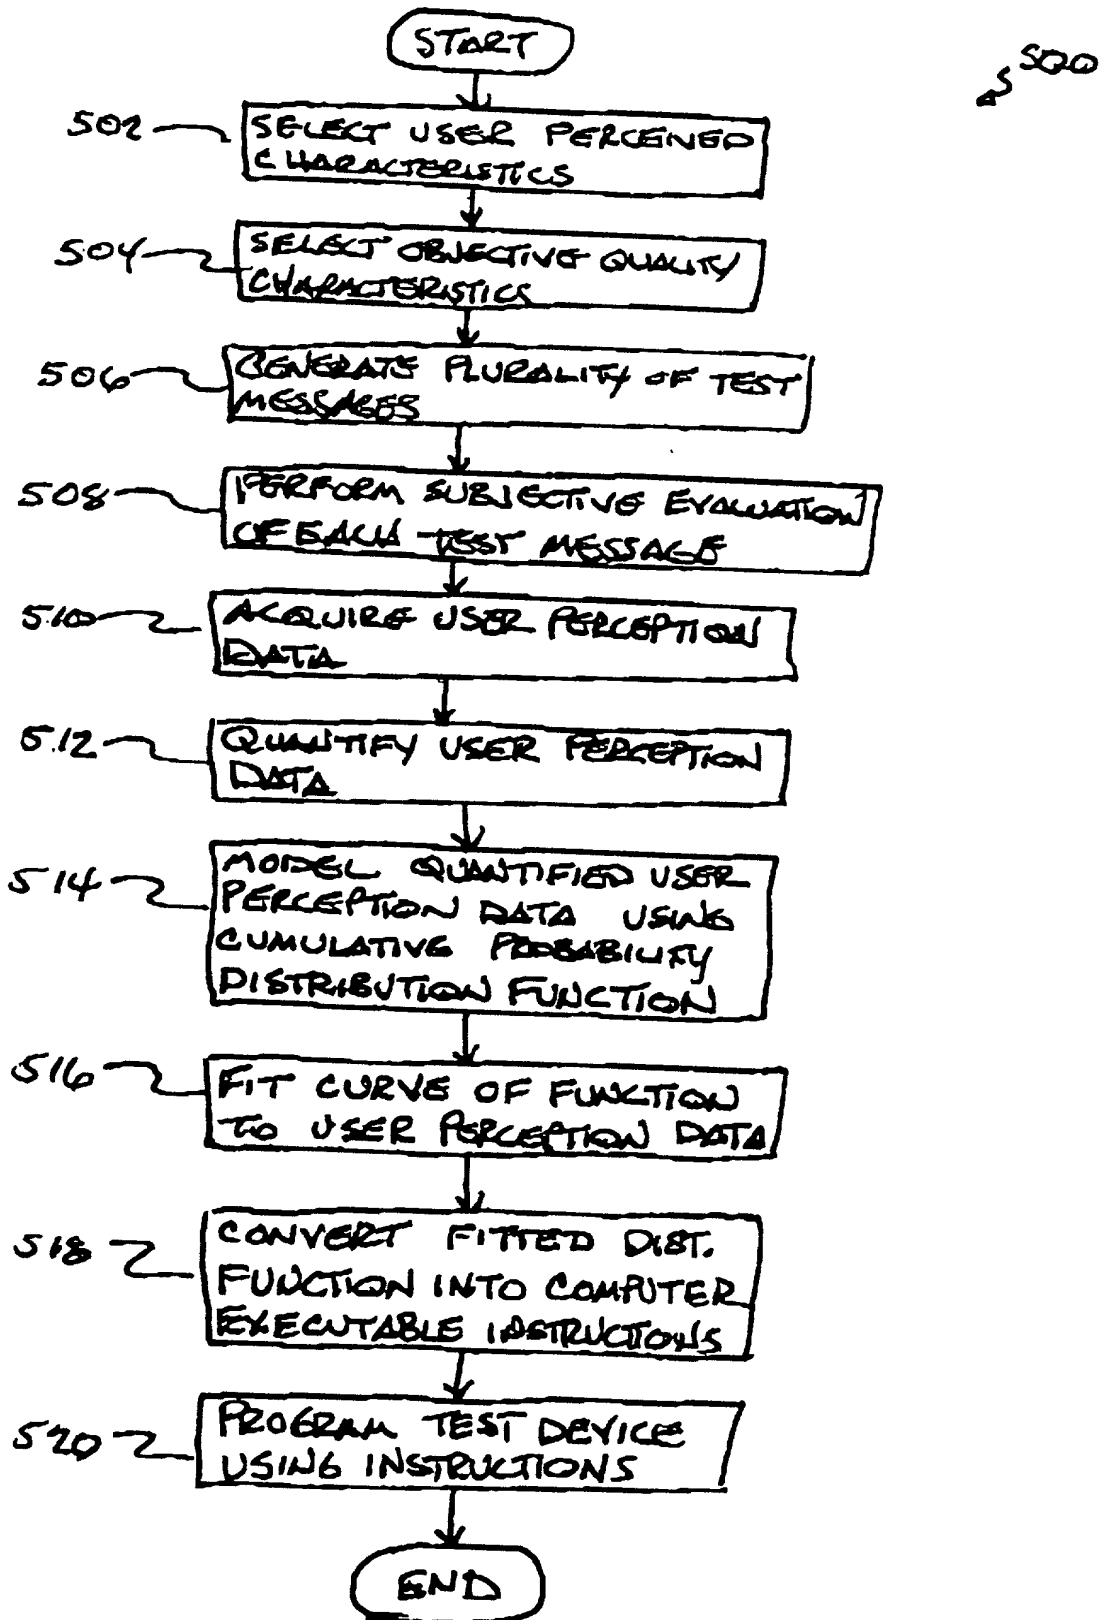 START
500
502
SELECT USER PERCEIVED
CHARACTERISTICS
504
SELECT OBJECTIVE QUALITY
CHARACTERISTICS
506
GENERATE PLURALITY OF TEST
MESSAGES
508
PERFORM SUBJECTIVE EVALUATION
OF EACH TEST MESSAGE
510
ACQUIRE USER PERCEPTION
DATA
512
QUANTIFY USER PERCEPTION
DATA
514
MODEL QUANTIFIED USER
PERCEPTION DATA USING
CUMULATIVE PROBABILITY
DISTRIBUTION FUNCTION
516
FIT CURVE OF FUNCTION
TO USER PERCEPTION DATA
518
CONVERT FITTED DIST.
FUNCTION INTO COMPUTER
EXECUTABLE INSTRUCTIONS
520
PROGRAM TEST DEVICE
USING INSTRUCTIONS
END